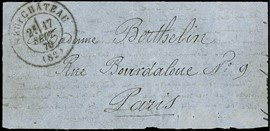 NEUFCHÂTEAU
2E 17
SEPT.
70
(82)
Madame Berthelin
Rue Bourdaloue No 9
Paris